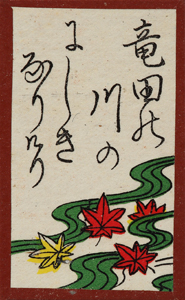 竜田の
川の
にしき
なりけり